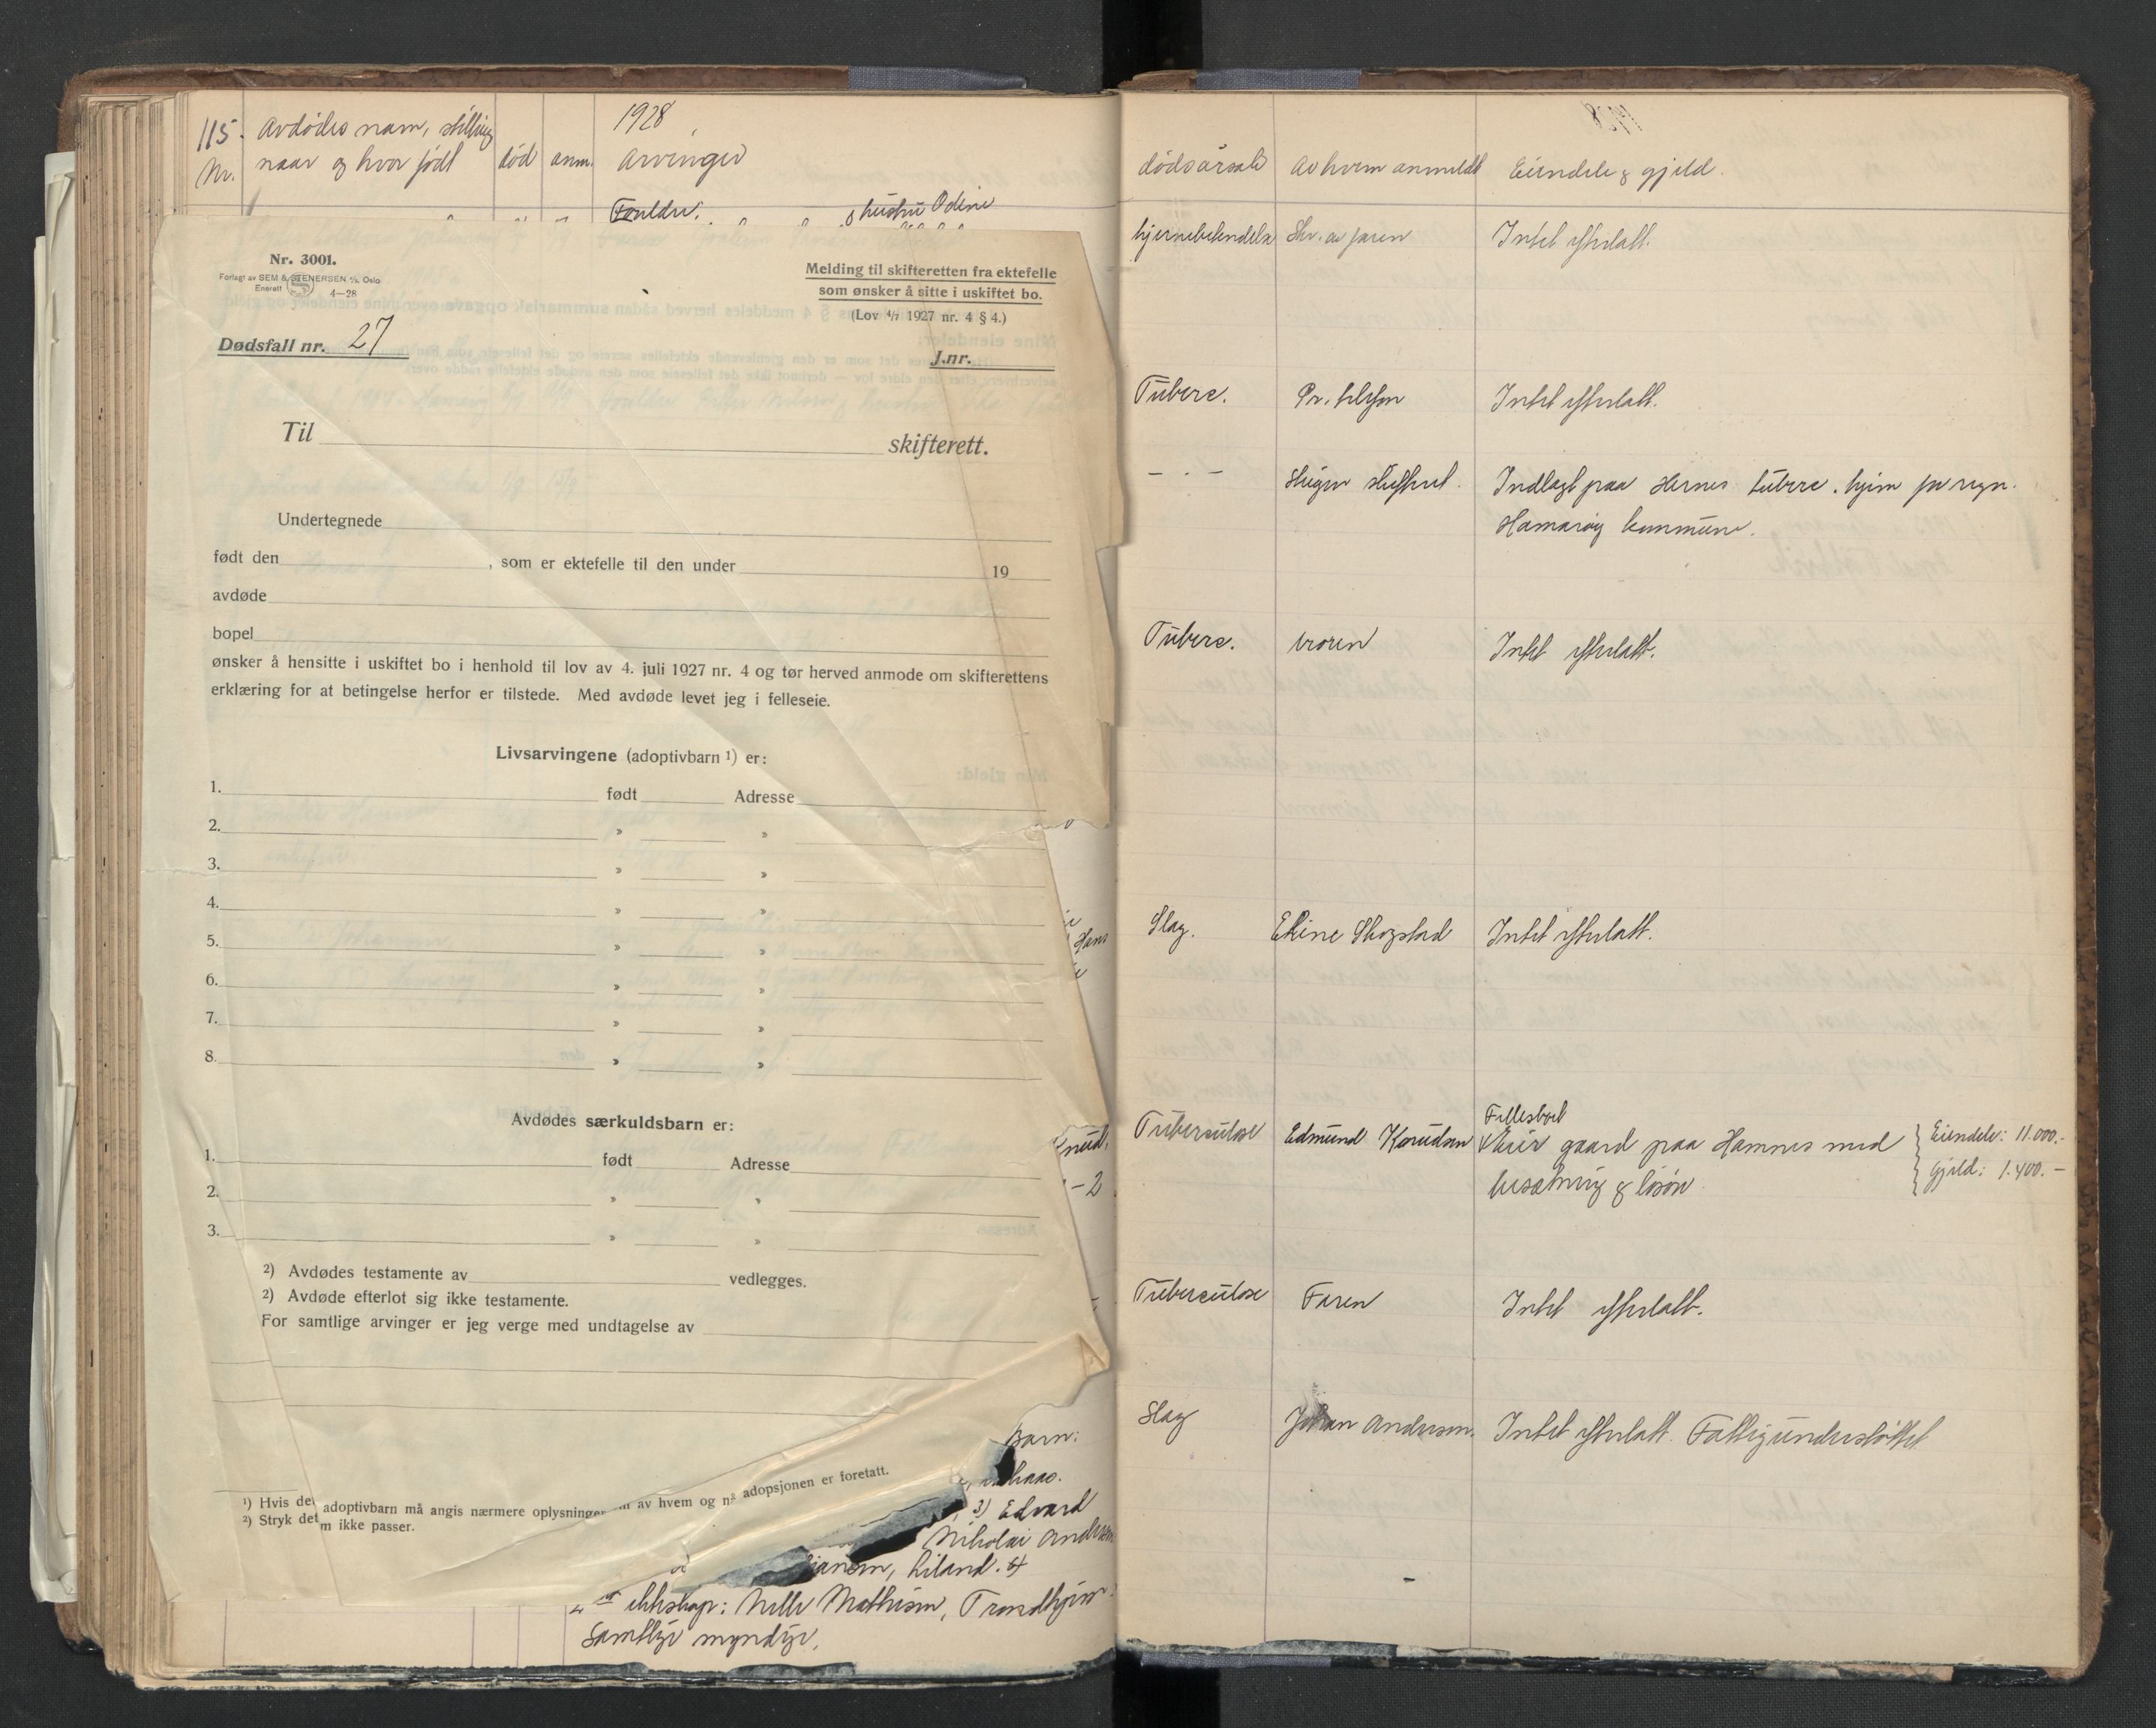 115.
1928
Avdødes navn, stilling
naar og hvor født
Nr.
død
anm.
Arvinger
Foreldre,
hustru Odine
Nr. 3001.
Forlagt av SEM & STENERSEN A/S, Oslo
Enerett
4—28
Melding til skifteretten fra ektefelle
som ønsker å sitte i uskiftet bo.
(Lov 4/7 1927 nr. 4 § 4.)
Dødsfall nr. 27
J.nr.
Til skifterett.
Undertegnede
født den , som er ektefelle til den under 19
avdøde
bopel
ønsker å hensitte i uskiftet bo i henhold til lov av 4. juli 1927 nr. 4 og tør herved anmode om skifterettens
erklæring for at betingelse herfor er tilstede. Med avdøde levet jeg i felleseie.
Livsarvingene (adoptivbarn 1) er:
1. født Adresse
2. » »
3. » »
4. » »
5. » »
6. » »
7. » »
8. » »
Avdødes særkuldsbarn er:
1. født Adresse
2. » »
3. » »
2) Avdødes testamente av vedlegges.
2) Avdøde efterlot sig ikke testamente.
For samtlige arvinger er jeg verge med undtagelse av
1) Hvis det adoptivbarn må angis nærmere oplysninger av hvem og nå adopsjonen er foretatt.
2) Stryk det m ikke passer.
Hans
Knud,
-2
Barn:
3) Edvard
Nikolai Andersen
Liland.
ekteskap: Nelle Mathisen, Trondhjem
Samtlige myndige.
1928
dødsårsak
Av hvem anmeldt
Eiendele & gjeld.
hjernebetendelse
Skr. av faren
Intet efterlatt.
Tuberc.
Pr. telefon
Intet efterlatt.
— · —
Steigen skifteret.
Indlagt paa Hernes tuberc. hjem for regn.
Hamarøy kommune.
Tuberc.
broren
Intet efterlatt.
Slag.
Eline Skogstad
Intet efterlatt.
Tuberculose
Edmund Knudsen
Fellesboet
Eier gaard paa Hamnes med
besætning & løsøre
Eiendele: 11.000.-
Gjeld: 1.400.—
Tuberculose
Faren
Intet efterlatt.
Slag
Johan Andersen.
Intet efterlatt. Fattigunderstøttet